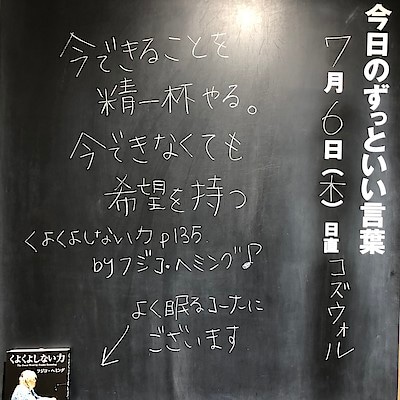 今日のずっといい言葉
7月6日(木)日直 コズウォル
今できることを
精一杯やる。
今できなくても
希望を持つ
くよくよしない力 p135.
by フジコ・ヘミング♪
よく眠るコーナーに
ございます
くよくよしない力
フジコ・ヘミング